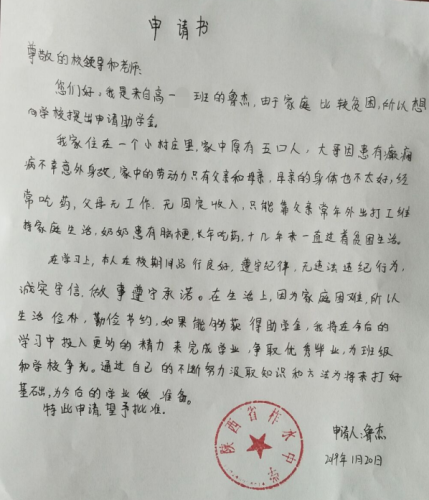 申请书
尊敬的校领导和老师:
您们好,我是来自高一 班的鲁杰,由于家庭比较贫困,所以想
向学校提出申请助学金。
我家住在一个小村庄里,家中原有五口人,大哥因患有癫痫
病不幸意外身故,家中的劳动力只有父亲和母亲,母亲的身体也不太好,经
常吃药,父母无工作,无固定收入,只能靠父亲常年外出打工维
持家庭生活,奶奶患有脑梗,长年吃药,十几年来一直过着贫困生活。
在学习上,本人在校期间品行良好,遵守纪律,无违法违纪行为,
诚实守信,做事遵守承诺。在生活上,因为家庭困难,所以
生活俭朴,勤俭节约,如果能够获得助学金,我将在今后的
学习中投入更多的精力来完成学业,争取优秀毕业,为班级
和学校争光。通过自己的不断努力汲取知识和方法为将来打好
基础,为今后的学业做准备。
特此申请望予批准。
陕西省柞水中学
申请人:鲁杰
2019年1月20日